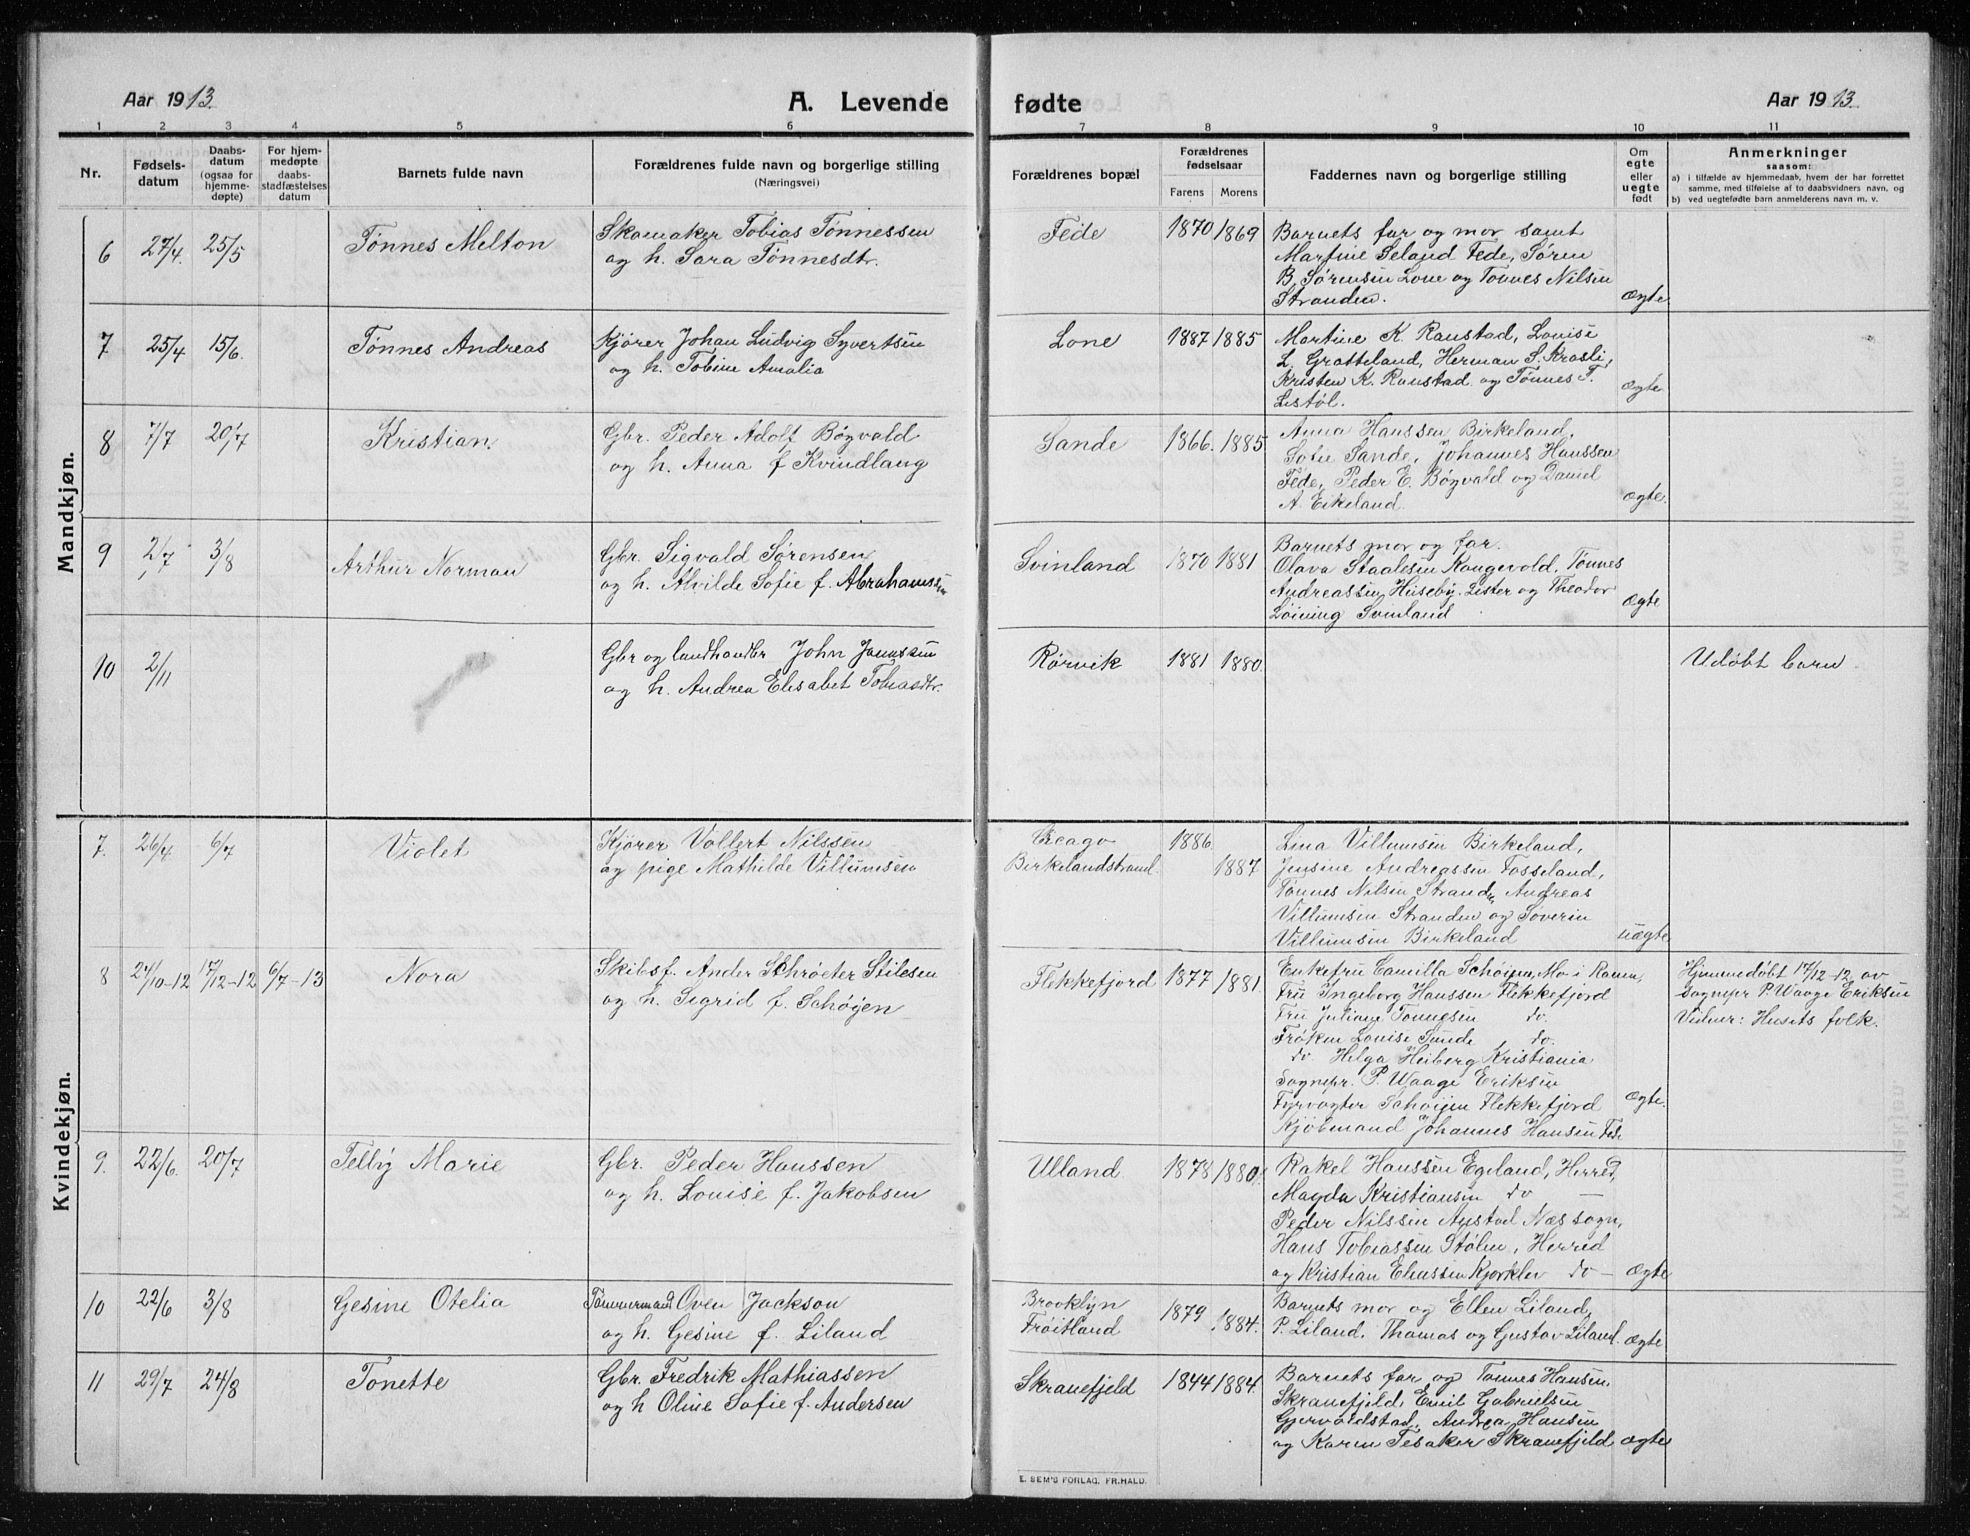 Aar 1913.
A. Levende fødte
Aar 1913.
1 2 3 4 5 6 7 8 9 10 11
Nr.
Fødsels-
datum
Daabs-
datum
(ogsaa for
hjemme-
døpte)
For hjem-
medøpte
daabs-
stadfæstelses
datum
Barnets fulde navn
Forældrenes fulde navn og borgerlige stilling
(Næringsvei)
Forældrenes bopæl
Forældrenes
fødselsaar
Farens Morens
Faddernes navn og borgerlige stilling
Om
egte
eller
uegte
født
Anmerkninger
saasom:
a) i tilfælde av hjemmedaab, hvem der har forrettet
samme, med tilføielse af to daabsvidners navn, og
b) ved uegtefødte barn anmelderens navn m. v.
Mandkjøn.
6 27/4. 25/5 Tønnes Melton
Skomaker Tobias Tønnessen
og h. Sara Tønnesdtr.
Fede 1870 1869
Barnets far og mor samt
Martine Seland Fede, Søren
B. Sørensen Lone og Tønnes Nilsen
Stranden.
ægte
7 25/4 15/6. Tønnes Andreas
Kjører Johan Ludvig Syvertsen
og h. Tobine Amalia
Lone 1887 1885
Martine K. Ranstad, Louise
L. Gratteland, Herman S. Krosli,
Kristen K. Ranstad og Tønnes T.
Listøl.
ægte
8 7/7 20/7 Kristian.
Gbr. Peder Adolf Bøgvald
og h. Anna f Kvindlaug
Sande 1866. 1885
Anna Hanssen Birkeland,
Sofie Sande, Johannes Hanssen
Fede, Peder E. Bøgvald og Daniel
A. Eikeland.
ægte.
9 2/7 3/8 Arthur Norman
Gbr. Sigvald Sørensen
og h. Alvilde Sofie f. Abrahamssen
Svinland 1870 1881
Barnets mor og far.
Olava Staalesen Kongevold, Tønnes
Andreassen Huseby. Lister og Theodor
Løining Svinland
ægte
10 2/11
Gbr og landhandler John Jonassen
og h. Andrea Elisabet Tobiasdtr.
Rørvik 1881 1880
Udøbt barn.
Kvindekjøn.
7. 26/4 6/7 Violet
Kjører Vollert Nilssen
og pige Mathilde Villumsen
Birkelandstrand
1886
1887
Lina Villumsen Birkeland,
Jensine Andreassen Fosseland,
Tønnes Nilsen Strand, Andreas
Villumsen Stranden og Søverin
Villumsen Birkeland
uægte
8 24/10-12 17/12-12 6/7-13 Nora
Skibsf. Ander Schrøeter Stilesen
og h. Sigrid f. Schøyen
Flekkefjord 1877 1881
Enkefru Camilla Schøien, Mo i Ranen,
Fru Ingeborg Hanssen Flekkefjord
Fru Juliane Tønnesen do.
Frøken Louise Tunde do.
do. Helga Heiberg Kristiania
Sognepr. P. Waage Eriksen
Fyrvogter Schøyen Flekkefjord
Kjøbmand Johannes Hansen Fede
ægte.
Hjemmedøbt 17/12-12 av
sognepr P. Waage Eriksen
Vidner: Husets folk.
9. 22/6 20/7 Telby Marie
Gbr. Peder Hanssen
og h. Louise f. Jakobsen
Ulland 1878 1880.
Rakel Hanssen Egeland, Herred,
Magda Kristiansen do —
Peder Nilssen Aystad Næs sogn,
Hans Tobiassen Stølen, Herred
og Kristian Eliassen do —
ægte
10 22/6 3/8 Gesine Otelia
Tømmermand Oven Jackson
og h. Gesine f. Liland
Brooklyn
Frøitland
1879
1884.
Barnets mor og Ellen Liland,
P. Liland. Thomas og Gustav Liland.
ægte
11 29/7 24/8 Tonette
Gbr. Fredrik Mathiassen
og h Oline Sofie f. Andersen
Skranefjeld 1844 1884.
Barnets far og Tønnes Hansen,
Skranefjeld, Emil Gabrielsen
Gjervoldstad, Andrea Hansen
og Karen Tesaker Skranefjeld
ægte
E. SEM'S FORLAG, FR.HALD.